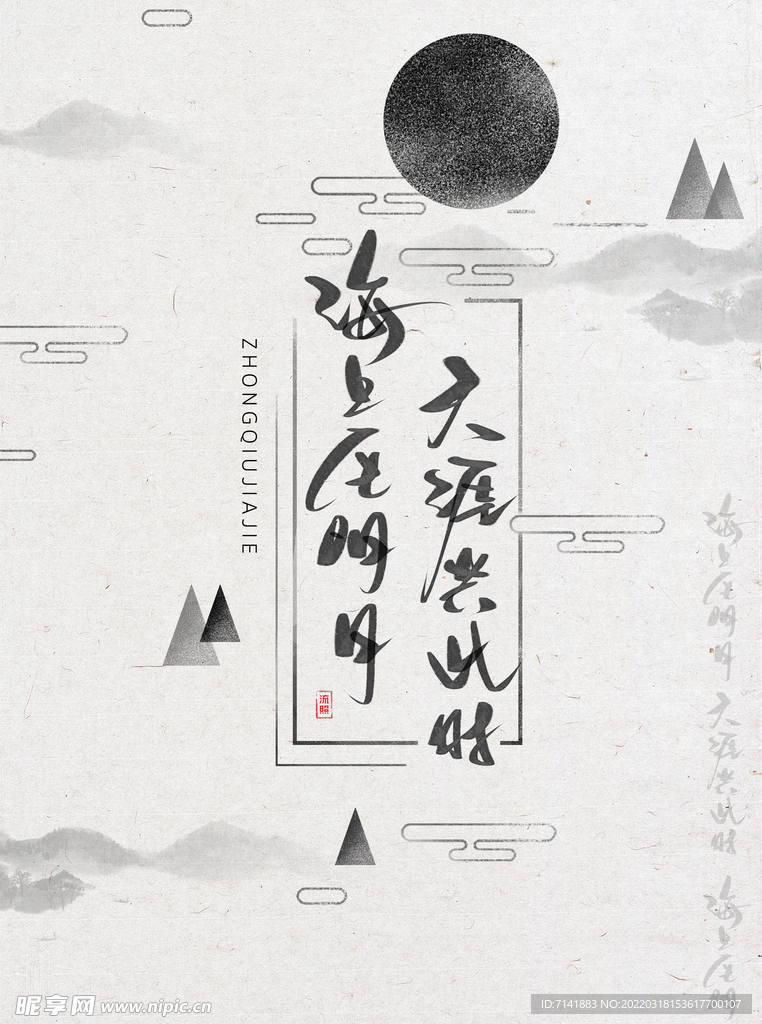 海上生明月
天涯共此时
ZHONGQIUJIAJIE
流照
海上生明月 天涯共此时 海上生明
昵享网 www.nipic.cn
ID:7141883 NO:20220318153617700107